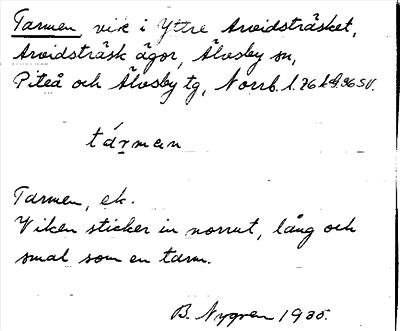 Tarmen, vik i Yttre Arvidsträsket,
Arvidsträsk ägor, Älvsby sn,
Piteå och Älvsby tg, Norrb. l. 26 kd 36 SV.
tármen
Tarmen, ek.
Viken sticker in norrut, lång och
smal som en tarm.
B. Nygren 1935.